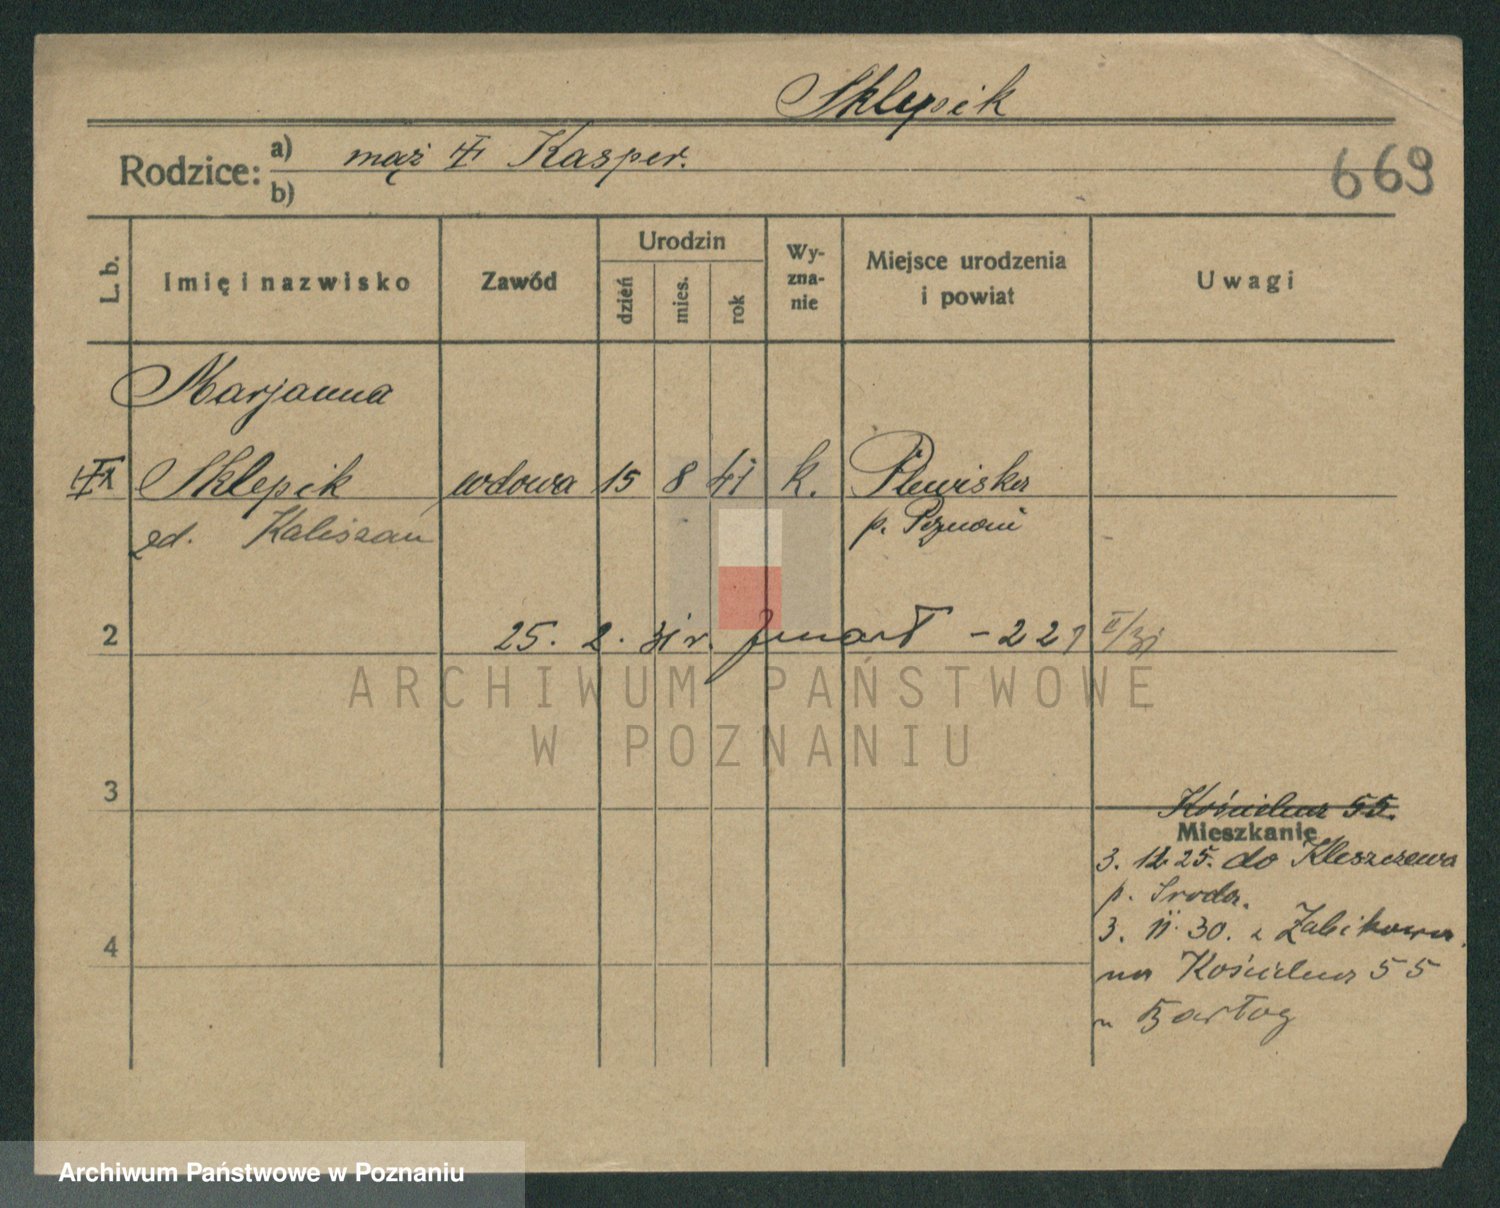 Sklepik
Rodzice: a) mąż Kasper.
b)
669
L. b. Imię i nazwisko Zawód Urodzin dzień mies. rok Wy-zna-nie Miejsce urodzenia i powiat Uwagi
Marjanna
Sklepik wdowa 15 8 41 k. Plewiska
zd. Kaliszan p. Poznań
2 25. 2. 31 r. zmarł - 221 II/31
ARCHIWUM PAŃSTWOWE
W POZNANIU
3 Kościelna 55.
Mieszkanie
3. 12 25. do Kleszczewa
p. Środa.
3. 11. 30. z Żabikowa
4
na Kościelna 55
u Bartog
Archiwum Państwowe w Poznaniu